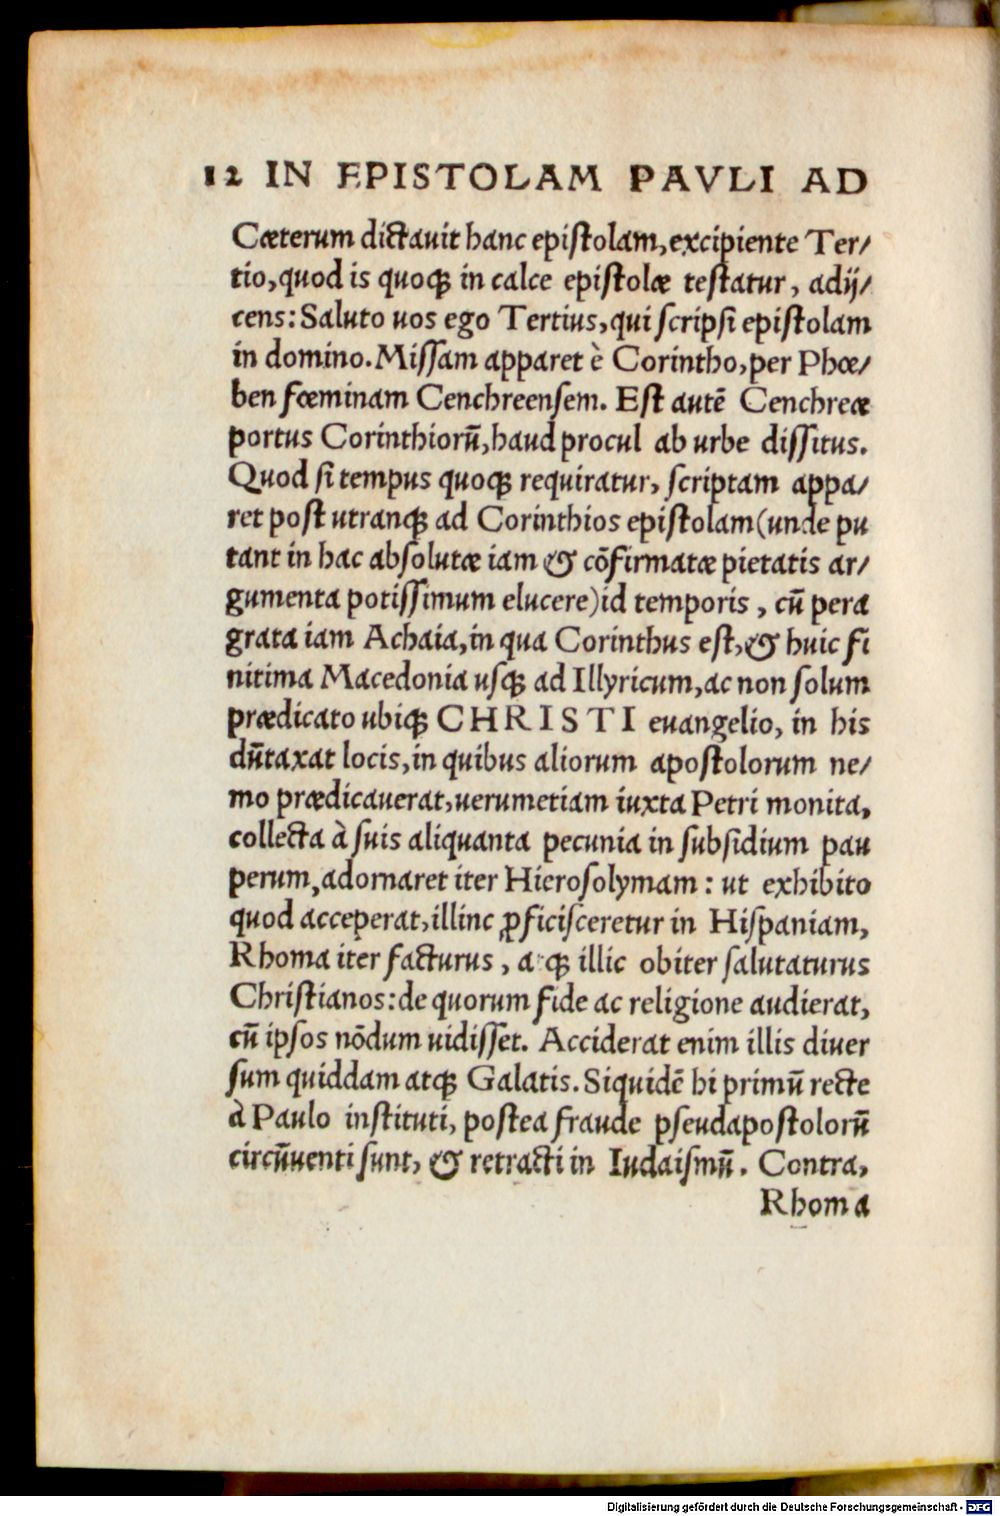 12 IN EPISTOLAM PAVLI AD
Cæterum dictauit hanc epistolam, excipiente Ter/
tio, quod is quoq; in calce epistolæ testatur, adij/
cens: Saluto uos ego Tertius, qui scripsi epistolam
in domino. Missam apparet è Corintho, per Phœ/
ben fœminam Cenchreensem. Est autē Cenchreæ
portus Corinthiorū, haud procul ab urbe dissitus.
Quod si tempus quoq; requiratur, scriptam appa/
ret post utranq; ad Corinthios epistolam (unde pu
tant in hac absolutæ iam & cōfirmatæ pietatis ar/
gumenta potissimum elucere) id temporis, cū pera
grata iam Achaia, in qua Corinthus est, & huic fi
nitima Macedonia usq; ad Illyricum, ac non solum
prædicato ubiq; CHRISTI euangelio, in his
dūtaxat locis, in quibus aliorum apostolorum ne/
mo prædicauerat, uerumetiam iuxta Petri monita,
collecta à suis aliquanta pecunia in subsidium pau
perum, adornaret iter Hierosolymam: ut exhibito
quod acceperat, illinc ꝓficisceretur in Hispaniam,
Rhoma iter facturus, atq; illic obiter salutaturus
Christianos: de quorum fide ac religione audierat,
cū ipsos nōdum uidisset. Acciderat enim illis diuer
sum quiddam atq; Galatis. Siquidē hi primū recte
à Paulo instituti, postea fraude pseudapostolorū
circūuenti sunt, & retracti in Iudaismū. Contra,
Rhoma
Digitalisierung gefördert durch die Deutsche Forschungsgemeinschaft - DFG